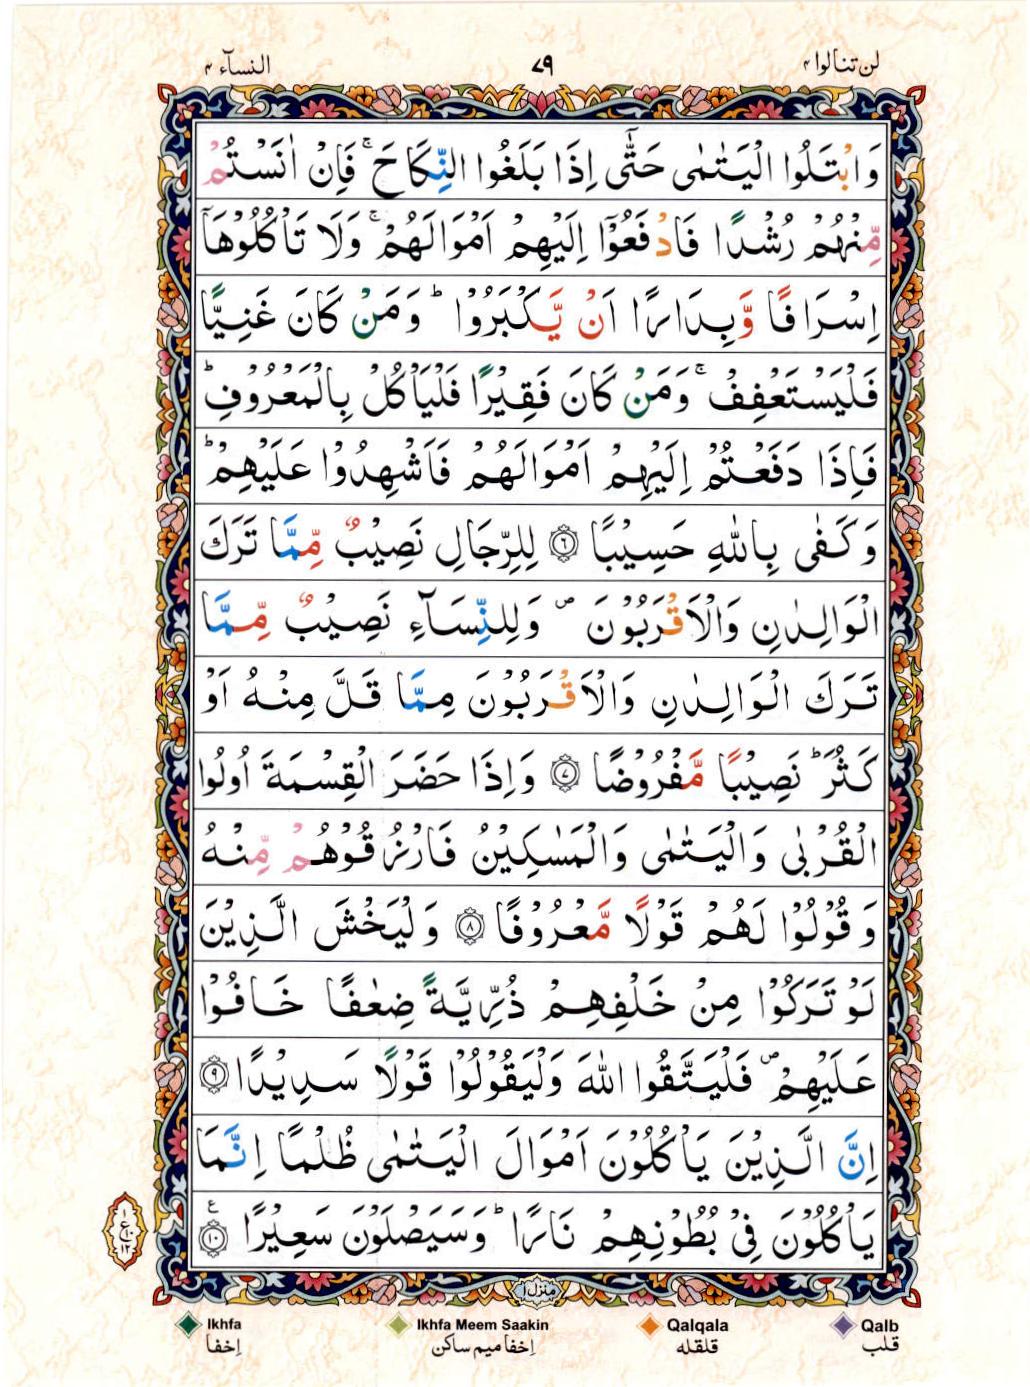 لن تنالوا ۴ ۷۹ النسآء ۴
وَابْتَلُوا الْيَتٰمٰى حَتّٰٓى اِذَا بَلَغُوا النِّكَاحَ ۚ فَاِنْ اٰنَسْتُمْ
مِّنْهُمْ رُشْدًا فَادْفَعُوْٓا اِلَيْهِمْ اَمْوَالَهُمْ ۚ وَلَا تَاْكُلُوْهَآ
اِسْرَافًا وَّبِدَارًا اَنْ يَّكْبَرُوْا ؕ وَمَنْ كَانَ غَنِيًّا
فَلْيَسْتَعْفِفْ ۚ وَمَنْ كَانَ فَقِيْرًا فَلْيَاْكُلْ بِالْمَعْرُوْفِ ؕ
فَاِذَا دَفَعْتُمْ اِلَيْهِمْ اَمْوَالَهُمْ فَاَشْهِدُوْا عَلَيْهِمْ ؕ
وَكَفٰى بِاللّٰهِ حَسِيْبًا ۶ لِلرِّجَالِ نَصِيْبٌ مِّمَّا تَرَكَ
الْوَالِدٰنِ وَالْاَقْرَبُوْنَ ۪ وَلِلنِّسَآءِ نَصِيْبٌ مِّمَّا
تَرَكَ الْوَالِدٰنِ وَالْاَقْرَبُوْنَ مِمَّا قَلَّ مِنْهُ اَوْ
كَثُرَ ؕ نَصِيْبًا مَّفْرُوْضًا ۷ وَاِذَا حَضَرَ الْقِسْمَةَ اُولُوا
الْقُرْبٰى وَالْيَتٰمٰى وَالْمَسٰكِيْنُ فَارْزُقُوْهُمْ مِّنْهُ
وَقُوْلُوْا لَهُمْ قَوْلًا مَّعْرُوْفًا ۸ وَلْيَخْشَ الَّذِيْنَ
لَوْ تَرَكُوْا مِنْ خَلْفِهِمْ ذُرِّيَّةً ضِعٰفًا خَافُوْا
عَلَيْهِمْ ۪ فَلْيَتَّقُوا اللّٰهَ وَلْيَقُوْلُوْا قَوْلًا سَدِيْدًا ۹
اِنَّ الَّذِيْنَ يَاْكُلُوْنَ اَمْوَالَ الْيَتٰمٰى ظُلْمًا اِنَّمَا
يَاْكُلُوْنَ فِيْ بُطُوْنِهِمْ نَارًا ؕ وَسَيَصْلَوْنَ سَعِيْرًا ۱۰ ع
۱ ع ۱۰ ۱۲
منزل ۱
Ikhfa Ikhfa Meem Saakin Qalqala Qalb
اِخفا اِخفا میم ساکن قلقله قلب